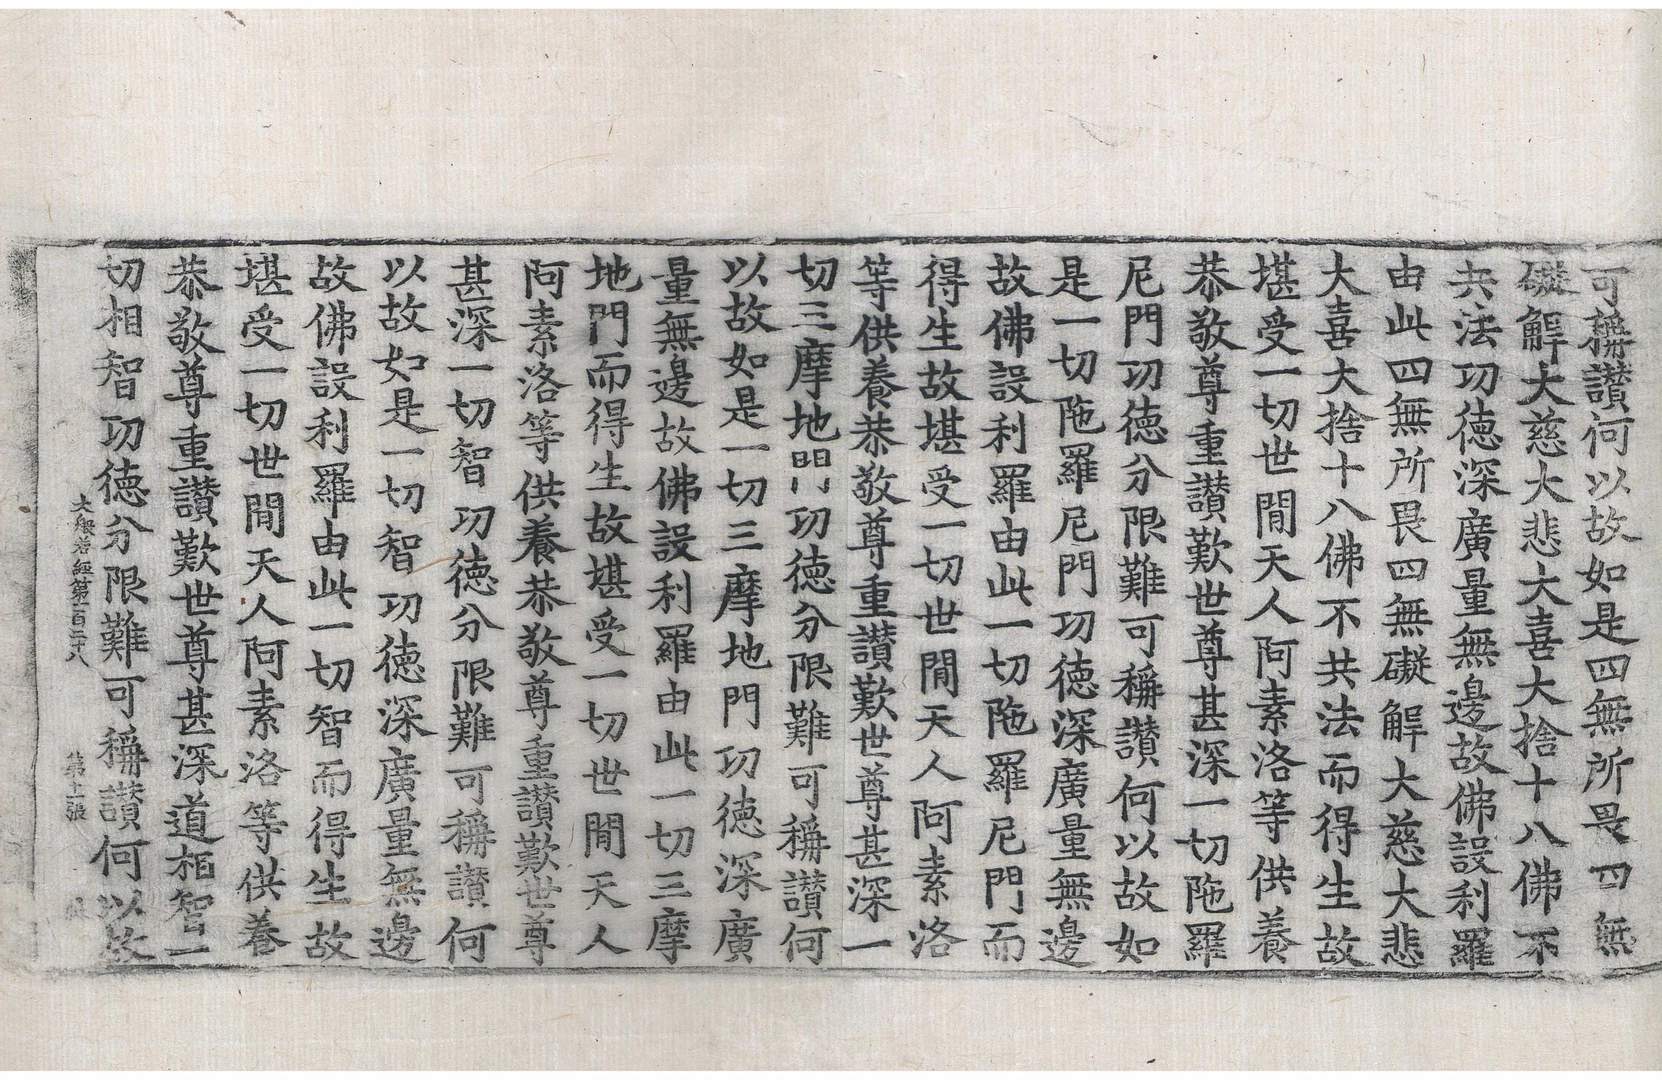 可稱讚何以故如是四無所畏四無
礙解大慈大悲大喜大捨十八佛不
共法功德深廣量無邊故佛設利羅
由此四無所畏四無礙解大慈大悲
大喜大捨十八佛不共法而得生故
堪受一切世間天人阿素洛等供養
恭敬尊重讚歎世尊甚深一切陁羅
尼門功德分限難可稱讚何以故如
是一切陁羅尼門功德深廣量無邊
故佛設利羅由此一切陁羅尼門而
得生故堪受一切世間天人阿素洛
等供養恭敬尊重讚歎世尊甚深一
切三摩地門功德分限難可稱讚何
以故如是一切三摩地門功德深廣
量無邊故佛設利羅由此一切三摩
地門而得生故堪受一切世間天人
阿素洛等供養恭敬尊重讚歎世尊
甚深一切智功德分限難可稱讚何
以故如是一切智功德深廣量無邊
故佛設利羅由此一切智而得生故
堪受一切世間天人阿素洛等供養
恭敬尊重讚歎世尊甚深道相智一
切相智功德分限難可稱讚何以故
大般若經第一百二十八 第 張